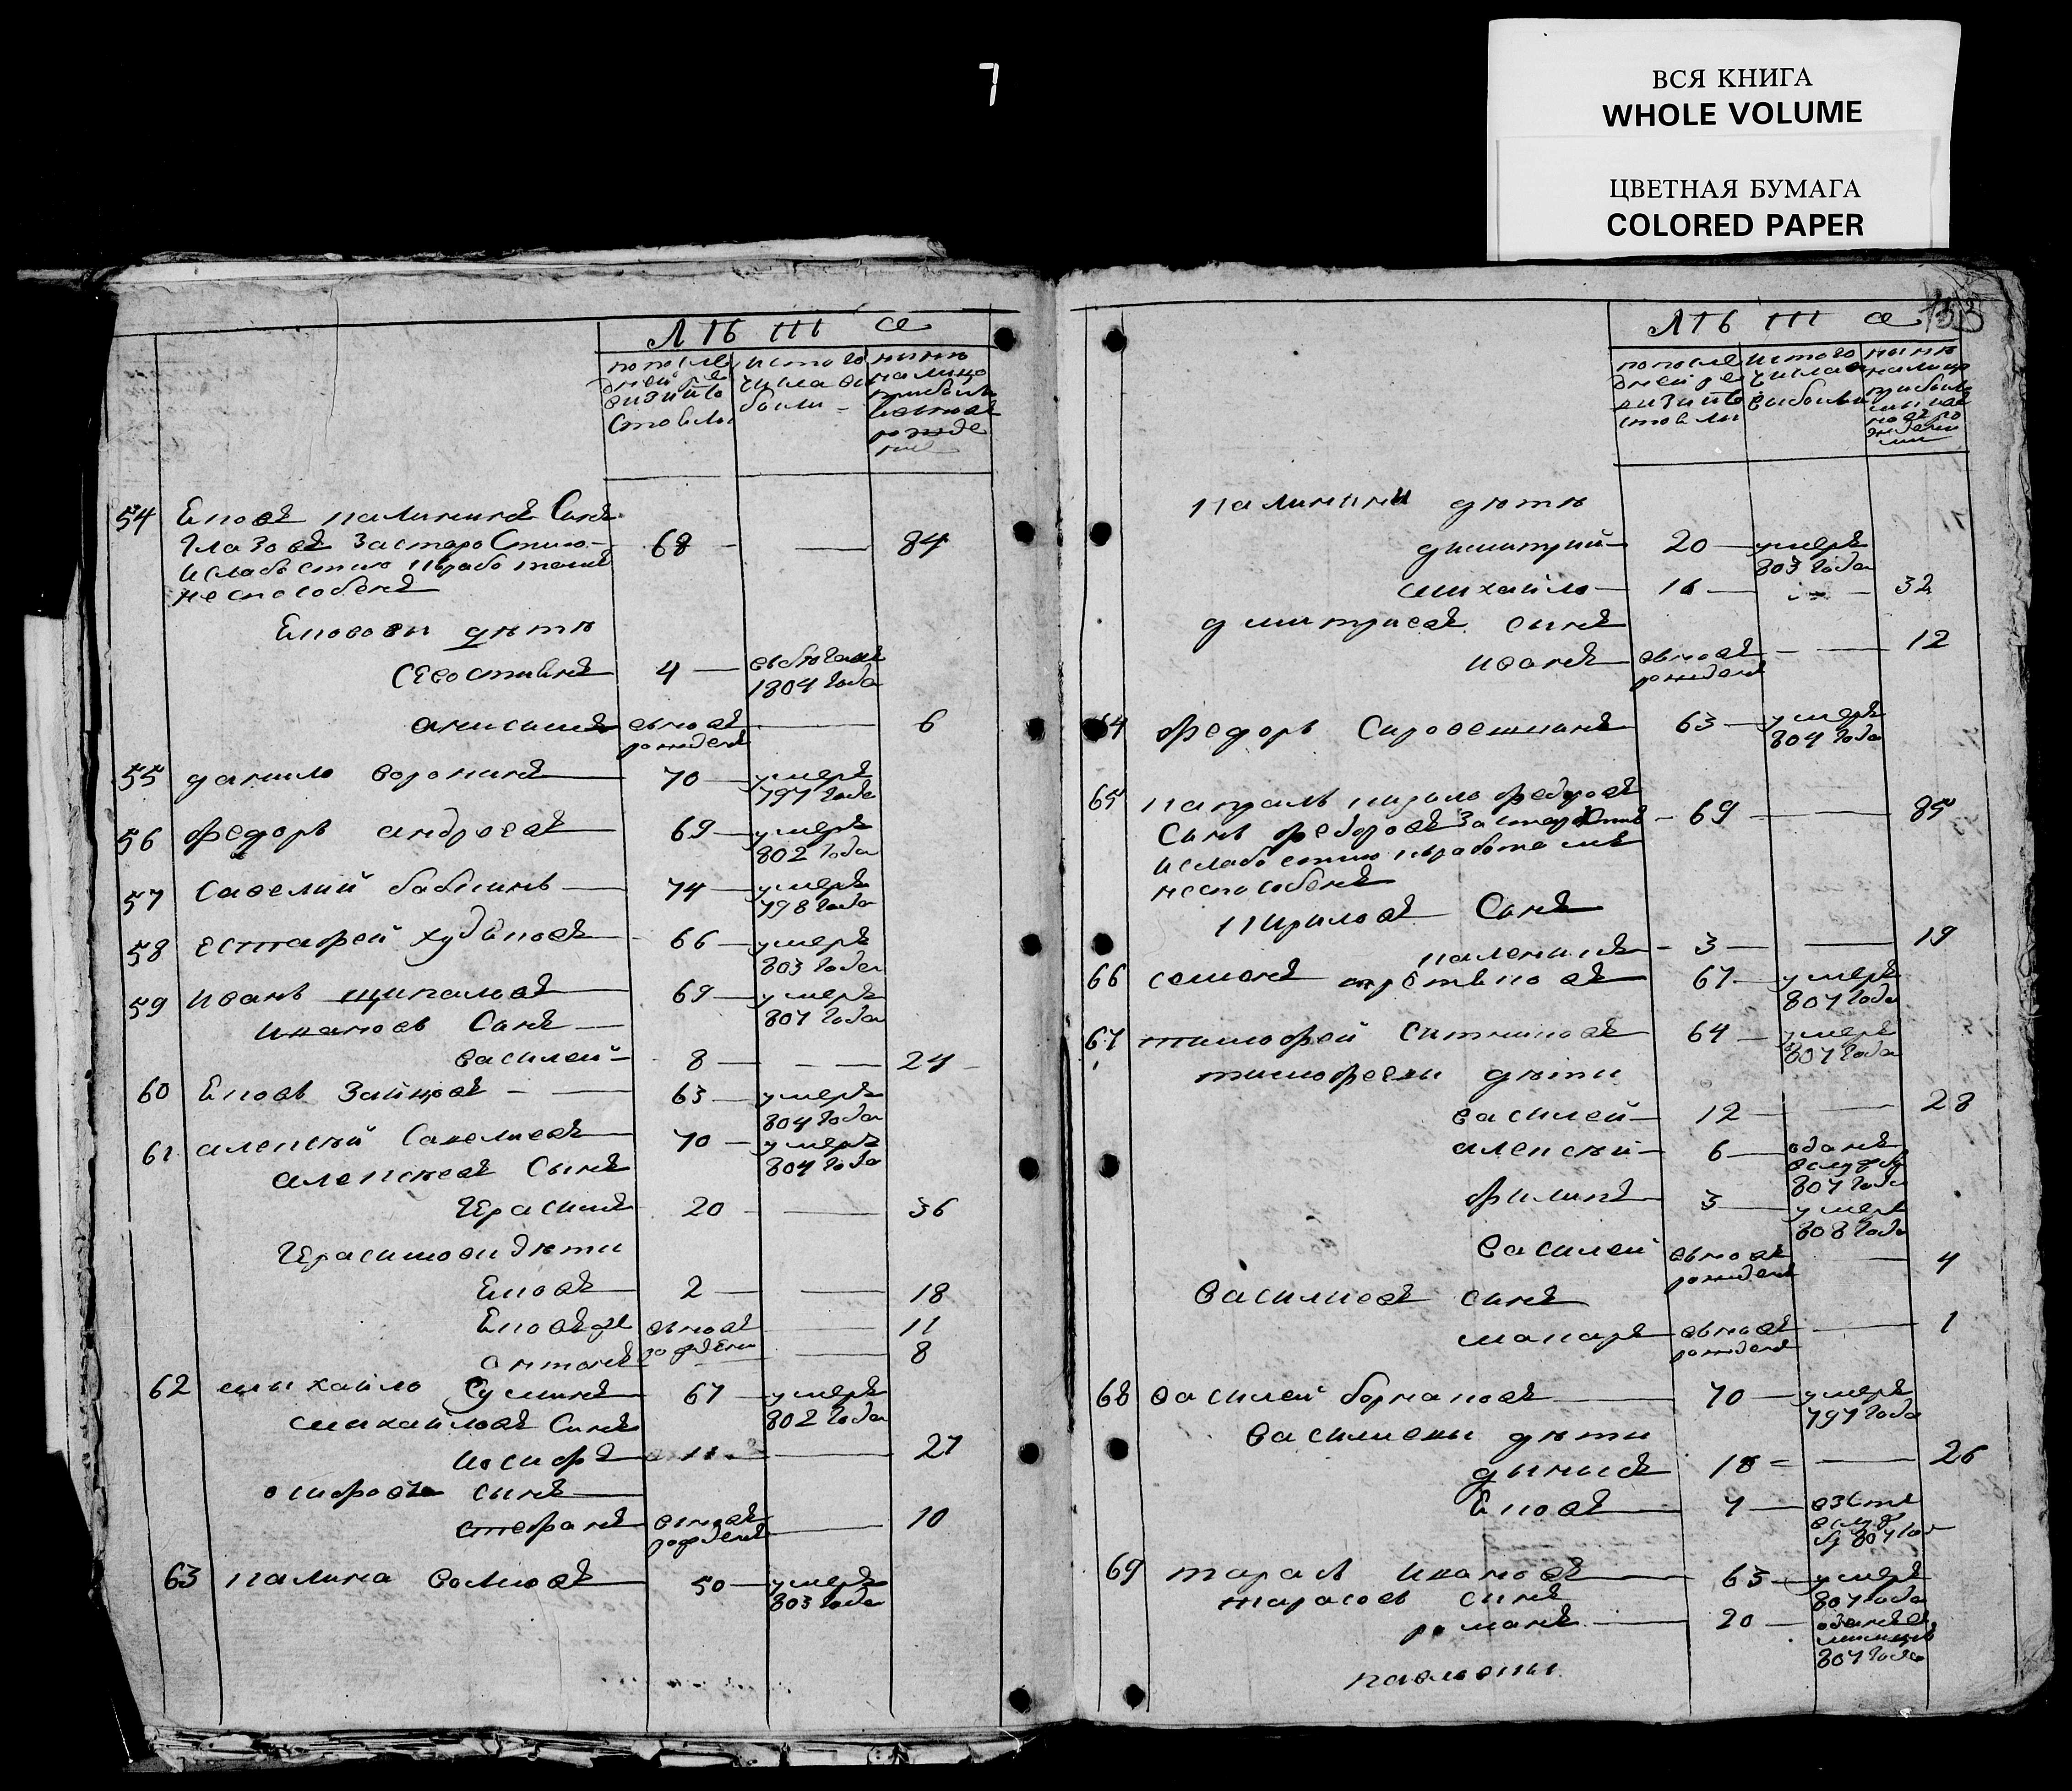 7
ВСЯ КНИГА
WHOLE VOLUME
ЦВЕТНАЯ БУМАГА
COLORED PAPER
ЛѢ ТА
по после
дней ре
визии со
стояли
ис того
числа вы
были
ныне
на лицо
54 Яковъ калининъ Сынъ
Глазовъ за старостию 68 — 84
и слабостию к работамъ
не способенъ
Яковови дѣти
Севостиянъ 4 — 1804 года
анисимъ вновь рожденъ — 6
55 данило воронинъ 70 — умеръ 797 года
56 Федоръ андреевъ 69 — умеръ 802 года
57 Савелий бабкинъ 74 — умеръ 798 года
58 естафей худяковъ 66 — умеръ 803 года
59 Иванъ щукаловъ 69 — умеръ 807 года
Сынъ
василей 8 — 24
60 Яковъ Зайцовъ 63 — умеръ 804 года
61 алексѣй Савелиевъ 70 — умеръ 804 года
алексѣевъ Сынъ
Герасимъ 20 — 36
Герасимови дѣти
Яковъ 2 — 18
Яковъ же вновь — 11
антонъ рождены — 8
62 михайло Сусминъ 67 — умеръ 802 года
михайловъ Сынъ
иосифъ 11 — 27
осифовъ сынъ
стефанъ вновь рожденъ — 10
63 калина волковъ 50 — умеръ 803 года
133
ЛѢ ТА
по после
дней ре
визии со
стояли
ис того
числа
выбыли
ныне
на лицо
калинини дѣти
димитрий 20 — умеръ 803 года
михайло 16 — 32
дмитриевъ сынъ
иванъ вновь рожденъ — 12
64 Федоръ Сыровешкинъ 63 — умеръ 804 года
65 кирило федоровъ
Сынъ федоровъ за старостию — 69 — 85
и слабостию к работамъ
не способенъ
кириловъ Сынъ
калиникъ — 3 — 19
66 семенъ третьяковъ 67 — умеръ 807 года
67 тимофей Ситниковъ 64 — умеръ 807 года
тимофееви дѣти
василей 12 — 28
алексѣй 6 — отданъ 807 года
филипъ 3 — умеръ 808 года
василей вновь рожденъ — 4
василиевъ сынъ
макаръ вновь рожденъ — 1
68 василей бормаковъ 70 — умеръ 797 года
василиевы дѣти
денисъ 18 — 26
Яковъ 7 — 807 го
69 тарасъ ивановъ 63 — умеръ 807 года
тарасовъ сынъ
романъ 20 — отданъ в милицию 807 года
павловы